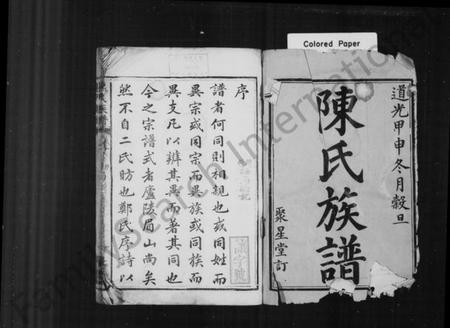 Colored Paper
道光甲申冬月穀旦
陳氏族譜
聚星堂訂
序
譜者何同則相親也或同姓而
異宗或同宗而異族或同族而
異支凡以辨其異而著其同也
今之宗譜式者廬陵眉山尚矣
然不自二氏昉也鄭氏序詩以
字號
FamilySearch International